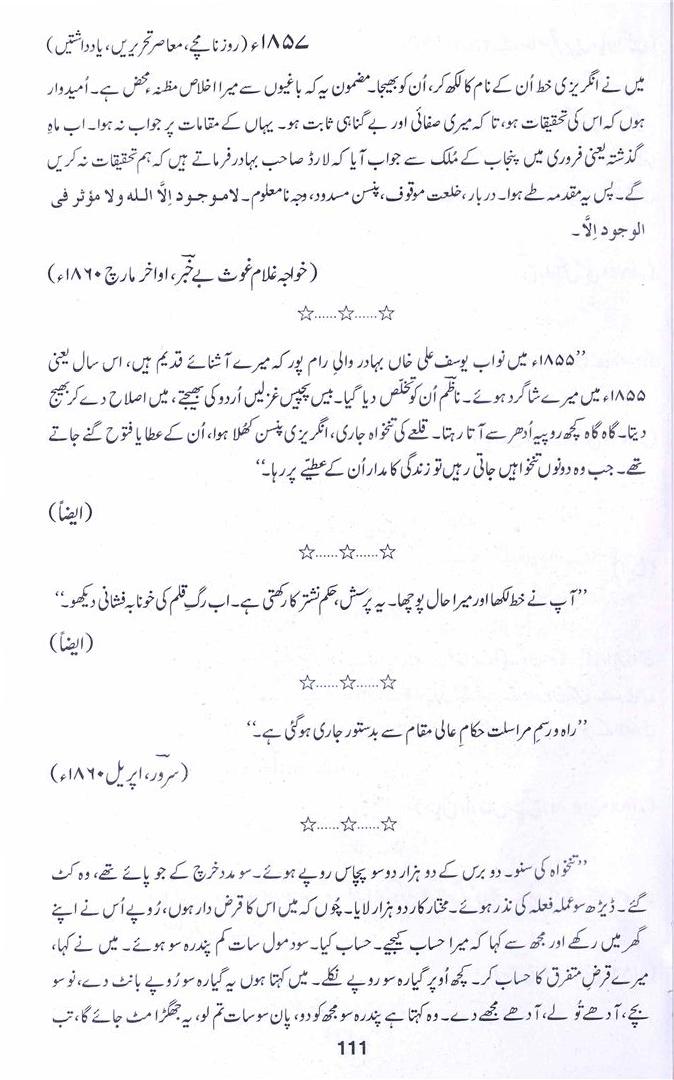 ۱۸۵۷ء (روزنامچے، معاصر تحریریں، یادداشتیں)
میں نے انگریزی خط اُن کے نام کا لکھ کر، اُن کو بھیجا۔ مضمون یہ کہ باغیوں سے میرا اخلاص مظنہء محض ہے۔ اُمیدوار
ہوں کہ اس کی تحقیقات ہو، تا کہ میری صفائی اور بے گناہی ثابت ہو۔ یہاں کے مقامات پر جواب نہ ہوا۔ اب ماہِ
گذشتہ یعنی فروری میں پنجاب کے مُلک سے جواب آیا کہ لارڈ صاحب بہادر فرماتے ہیں کہ ہم تحقیقات نہ کریں
گے۔ پس یہ مقدمہ طے ہوا۔ دربار، خلعت موقوف، پنسن مسدود، وجہ نامعلوم۔ لاموجود اِلَّا اللہ ولا مؤثر فی
الوجود اِلَّا۔
(خواجہ غلام غوث بے خبؔر، اواخر مارچ ۱۸۶۰ء)
☆......☆......☆
’’۱۸۵۵ء میں نواب یوسف علی خاں بہادر والیِ رام پور کہ میرے آشنائے قدیم ہیں، اس سال یعنی
۱۸۵۵ء میں میرے شاگرد ہوئے۔ ناظؔم اُن کو تخلّص دیا گیا۔ بیس پچیس غزلیں اُردو کی بھیجتے، میں اصلاح دے کر بھیج
دیتا۔ گاہ گاہ کچھ روپیہ اُدھر سے آتا رہتا۔ قلعے کی تنخواہ جاری، انگریزی پنسن کھُلا ہوا، اُن کے عطایا فتوح گنے جاتے
تھے۔ جب وہ دونوں تنخواہیں جاتی رہیں تو زندگی کا مدار اُن کے عطیّے پر رہا۔‘‘
(ایضاً)
☆......☆......☆
’’آپ نے خط لکھا اور میرا حال پوچھا۔ یہ پرسش، حکم نشتر کا رکھتی ہے۔ اب رگِ قلم کی خونابہ فشانی دیکھو۔‘‘
(ایضاً)
☆......☆......☆
’’راہ و رسمِ مراسلت حکامِ عالی مقام سے بدستور جاری ہو گئی ہے۔‘‘
(سروؔر، اپریل ۱۸۶۰ء)
☆......☆......☆
’’تنخواہ کی سنو۔ دو برس کے دو ہزار دو سو پچاس روپے ہوئے۔ سو مدد خرچ کے جو پائے تھے، وہ کٹ
گئے۔ ڈیڑھ سو عملہ فعلہ کی نذر ہوئے۔ مختار کار دو ہزار لایا۔ چُوں کہ میں اس کا قرض دار ہوں، رُوپے اُس نے اپنے
گھر میں رکھے اور مجھ سے کہا کہ میرا حساب کیجیے۔ حساب کیا۔ سود مول سات کم پندرہ سو ہوئے۔ میں نے کہا،
میرے قرضِ متفرق کا حساب کر۔ کچھ اُوپر گیارہ سو روپے نکلے۔ میں کہتا ہوں یہ گیارہ سو رُوپے بانٹ دے، نو سو
بچے، آدھے تُو لے، آدھے مجھے دے۔ وہ کہتا ہے پندرہ سو مجھ کو دو، پان سو سات تم لو، یہ جھگڑا مٹ جائے گا، تب
111